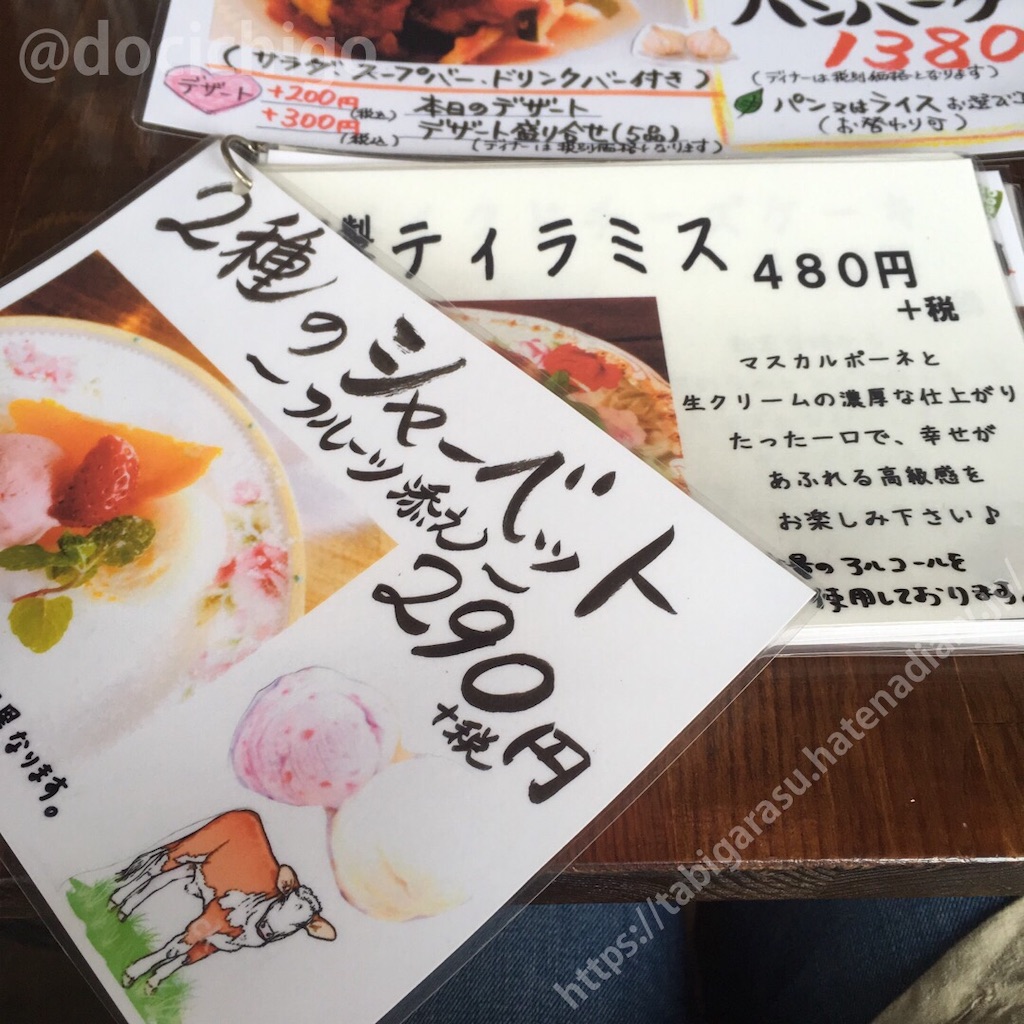 @dorichigo
ハンバーグ
1380
(サラダ、スープバー、ドリンクバー付き)
(ディナーは税別価格となります)
デザート
+200円(税込) 本日のデザート
+300円(税込) デザート盛り合せ(5品)
(ディナーは税別価格となります)
パン又はライス
(お替わり可)
製ティラミス
480円
+税
マスカルポーネと
生クリームの濃厚な仕上がり
たった一口で、幸せが
あふれる高級感を
お楽しみ下さい♪
アルコールを
使用しております。
2種のシャーベット
〜フルーツ添え〜
290円
+税
異なります。
https://tabigarasu.hatenadia